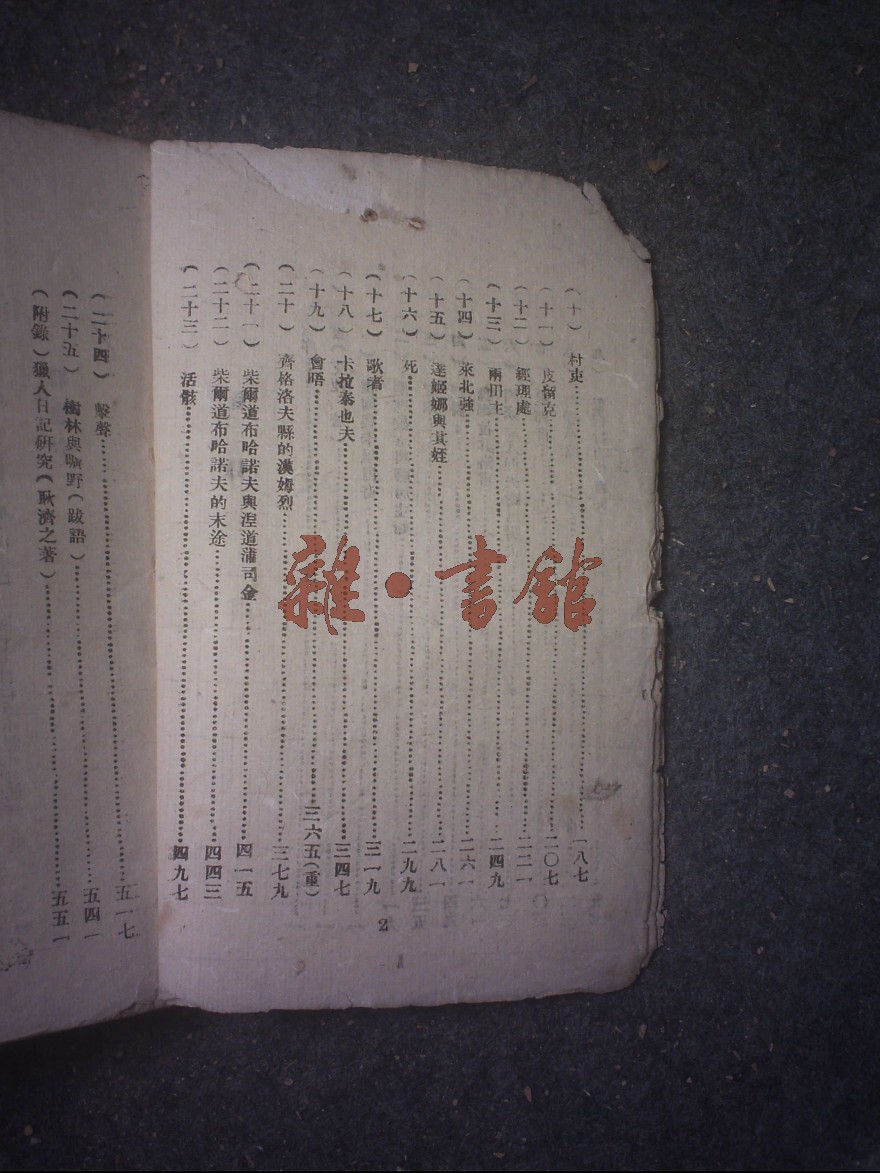 (十) 村吏 一八七
(十一) 皮留克 二〇七
(十二) 經理處 二二一
(十三) 兩田主 二四九
(十四) 萊北強 二六一
(十五) 達姬娜與其姪 二八一
(十六) 死 二九九
(十七) 歌者 三一九
(十八) 卡拉泰也夫 三四七
(十九) 會晤 三六五(重)
(二十) 齊格洛夫縣的漢姆烈 三七九
(二十一) 柴爾道布哈諾夫與湼道蒲司金 四一五
(二十二) 柴爾道布哈諾夫的末途 四四三
(二十三) 活骸 四九七
2
(二十四) 擊聲 五一七
(二十五) 樹林與曠野(跋語) 五四一
(附錄)獵人日記研究(耿濟之著) 五五一
雜·書館